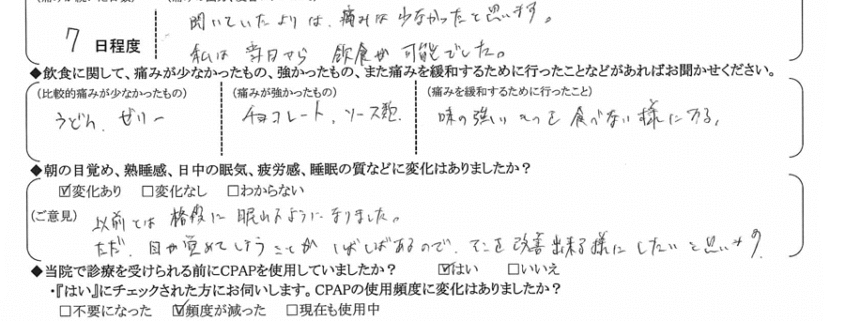 聞いていたよりは、痛みは少なかったと思います。
7 日程度
私は当日から 飲食が可能でした。
◆飲食に関して、痛みが少なかったもの、強かったもの、また痛みを緩和するために行ったことなどがあればお聞かせください。
(比較的痛みが少なかったもの) (痛みが強かったもの) (痛みを緩和するために行ったこと)
うどん、ゼリー チョコレート、ソース類 味の強いものを食べない様にする。
◆朝の目覚め、熟睡感、日中の眠気、疲労感、睡眠の質などに変化はありましたか？
☑変化あり □変化なし □わからない
(ご意見) 以前とは格段に眠れるようになりました。
ただ、目が覚めてしまうことがしばしばあるので、そこを改善出来る様にしたいと思います。
◆当院で診療を受けられる前にCPAPを使用していましたか？ ☑はい □いいえ
・『はい』にチェックされた方にお伺いします。CPAPの使用頻度に変化はありましたか？
□不要になった ☑頻度が減った □現在も使用中